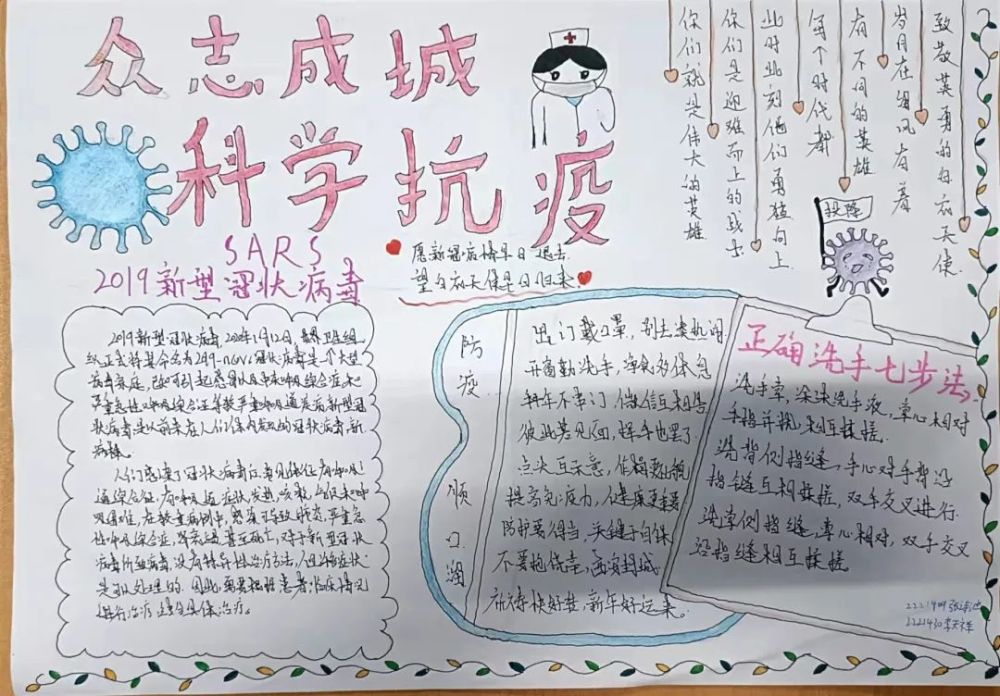 众志成城
科学抗疫
SARS
2019新型冠状病毒
愿新冠疫情早日退去
望白衣天使早日归来
致敬英勇的白衣天使
岁月在细风有着
有不同的英雄
每个时代都
此时此刻他们勇猛向上
你们是迎难而上的战士
你们就是伟大的英雄
投降
2019新型冠状病毒，2020年1月12日，世界卫生组
织正式将其命名为2019-nCoV。冠状病毒是一个大型
病毒家庭，已知可引起感冒以及中东呼吸综合征和
严重急性呼吸综合征等较严重疾病。新型冠
状病毒是以前未在人们体内发现的冠状病毒新
病株。
人们感染了冠状病毒后常见体征有呼吸
道综合征，有呼吸道症状、发热、咳嗽、气促和呼
吸困难，在较重病例中，感染可导致肺炎，严重急
性呼吸综合症，肾衰竭甚至死亡，对于新型冠状
病毒所致病毒，没有特异性治疗方法，但许多症状
是可以处理的，因此需要根据患者临床情况
进行治疗
防疫顺口溜
出门戴口罩，别去凑热闹
开窗勤洗手，消毒多休息
拜年不串门，微信互相告
彼此若见面，挥手也罢了
点头互示意，作揖要比抱
提高免疫力，健康更重要
防护要得当，关键于自保
不要抱侥幸，
所待快好转，新年好运来。
正确洗手七步法
洗手掌，涂抹洗手液，掌心相对
手指并拢，相互揉搓
洗背侧指缝，手心对手背沿
指缝互相揉搓，双手交叉进行
洗掌侧指缝，掌心相对，双手交叉
沿指缝相互揉搓